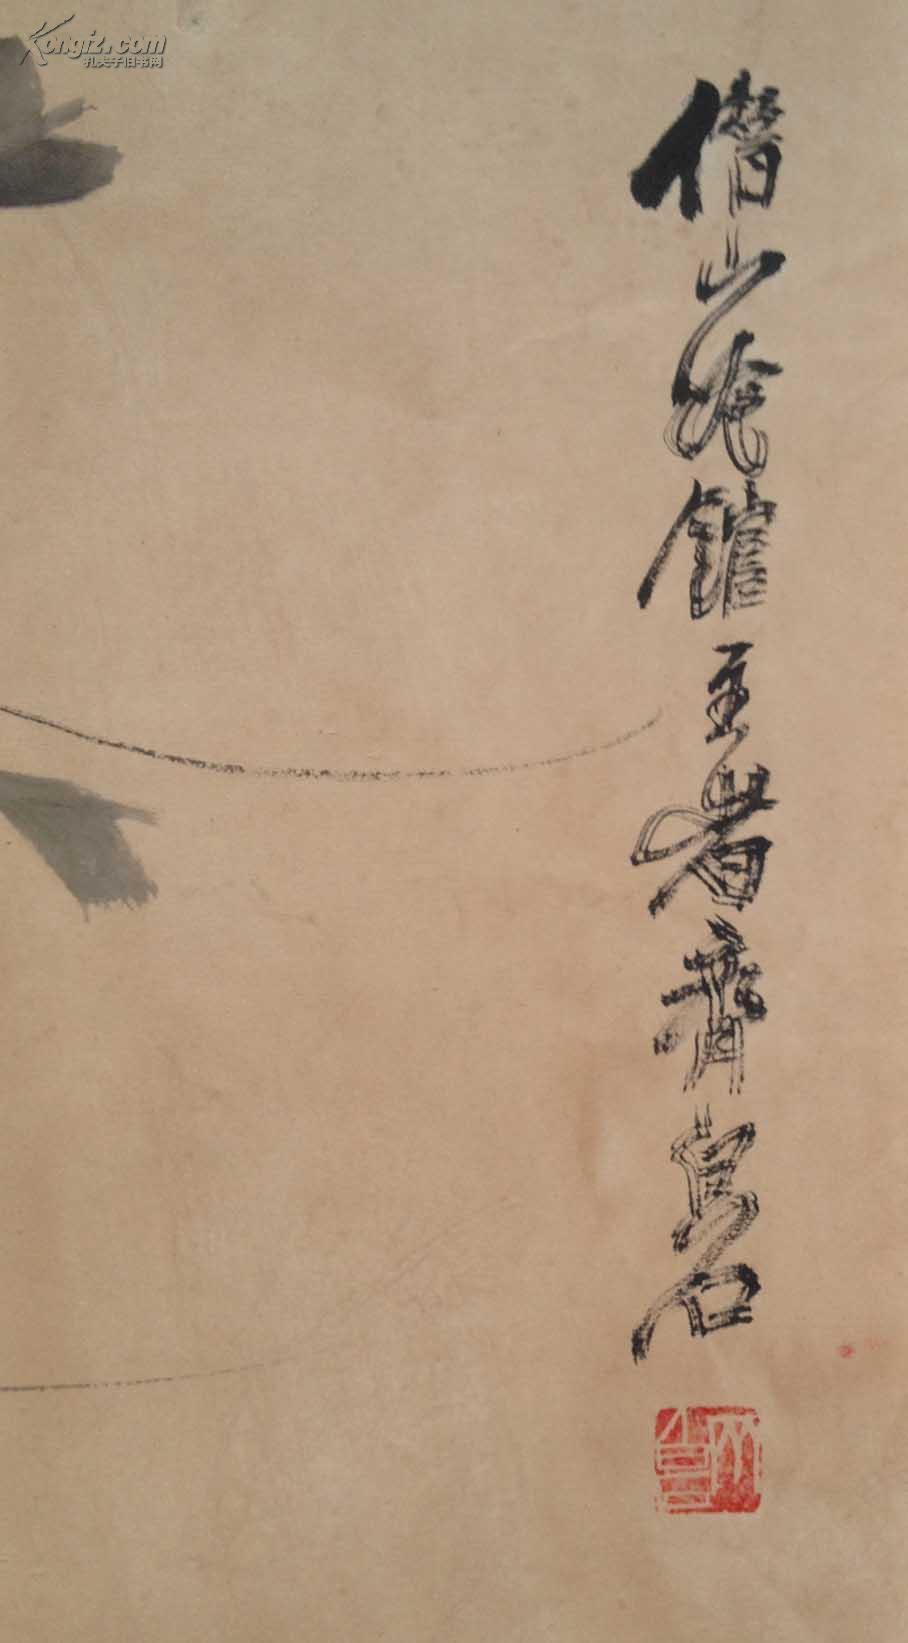 Kongfz.com
孔夫子旧书网
借山吟館主者齊白石